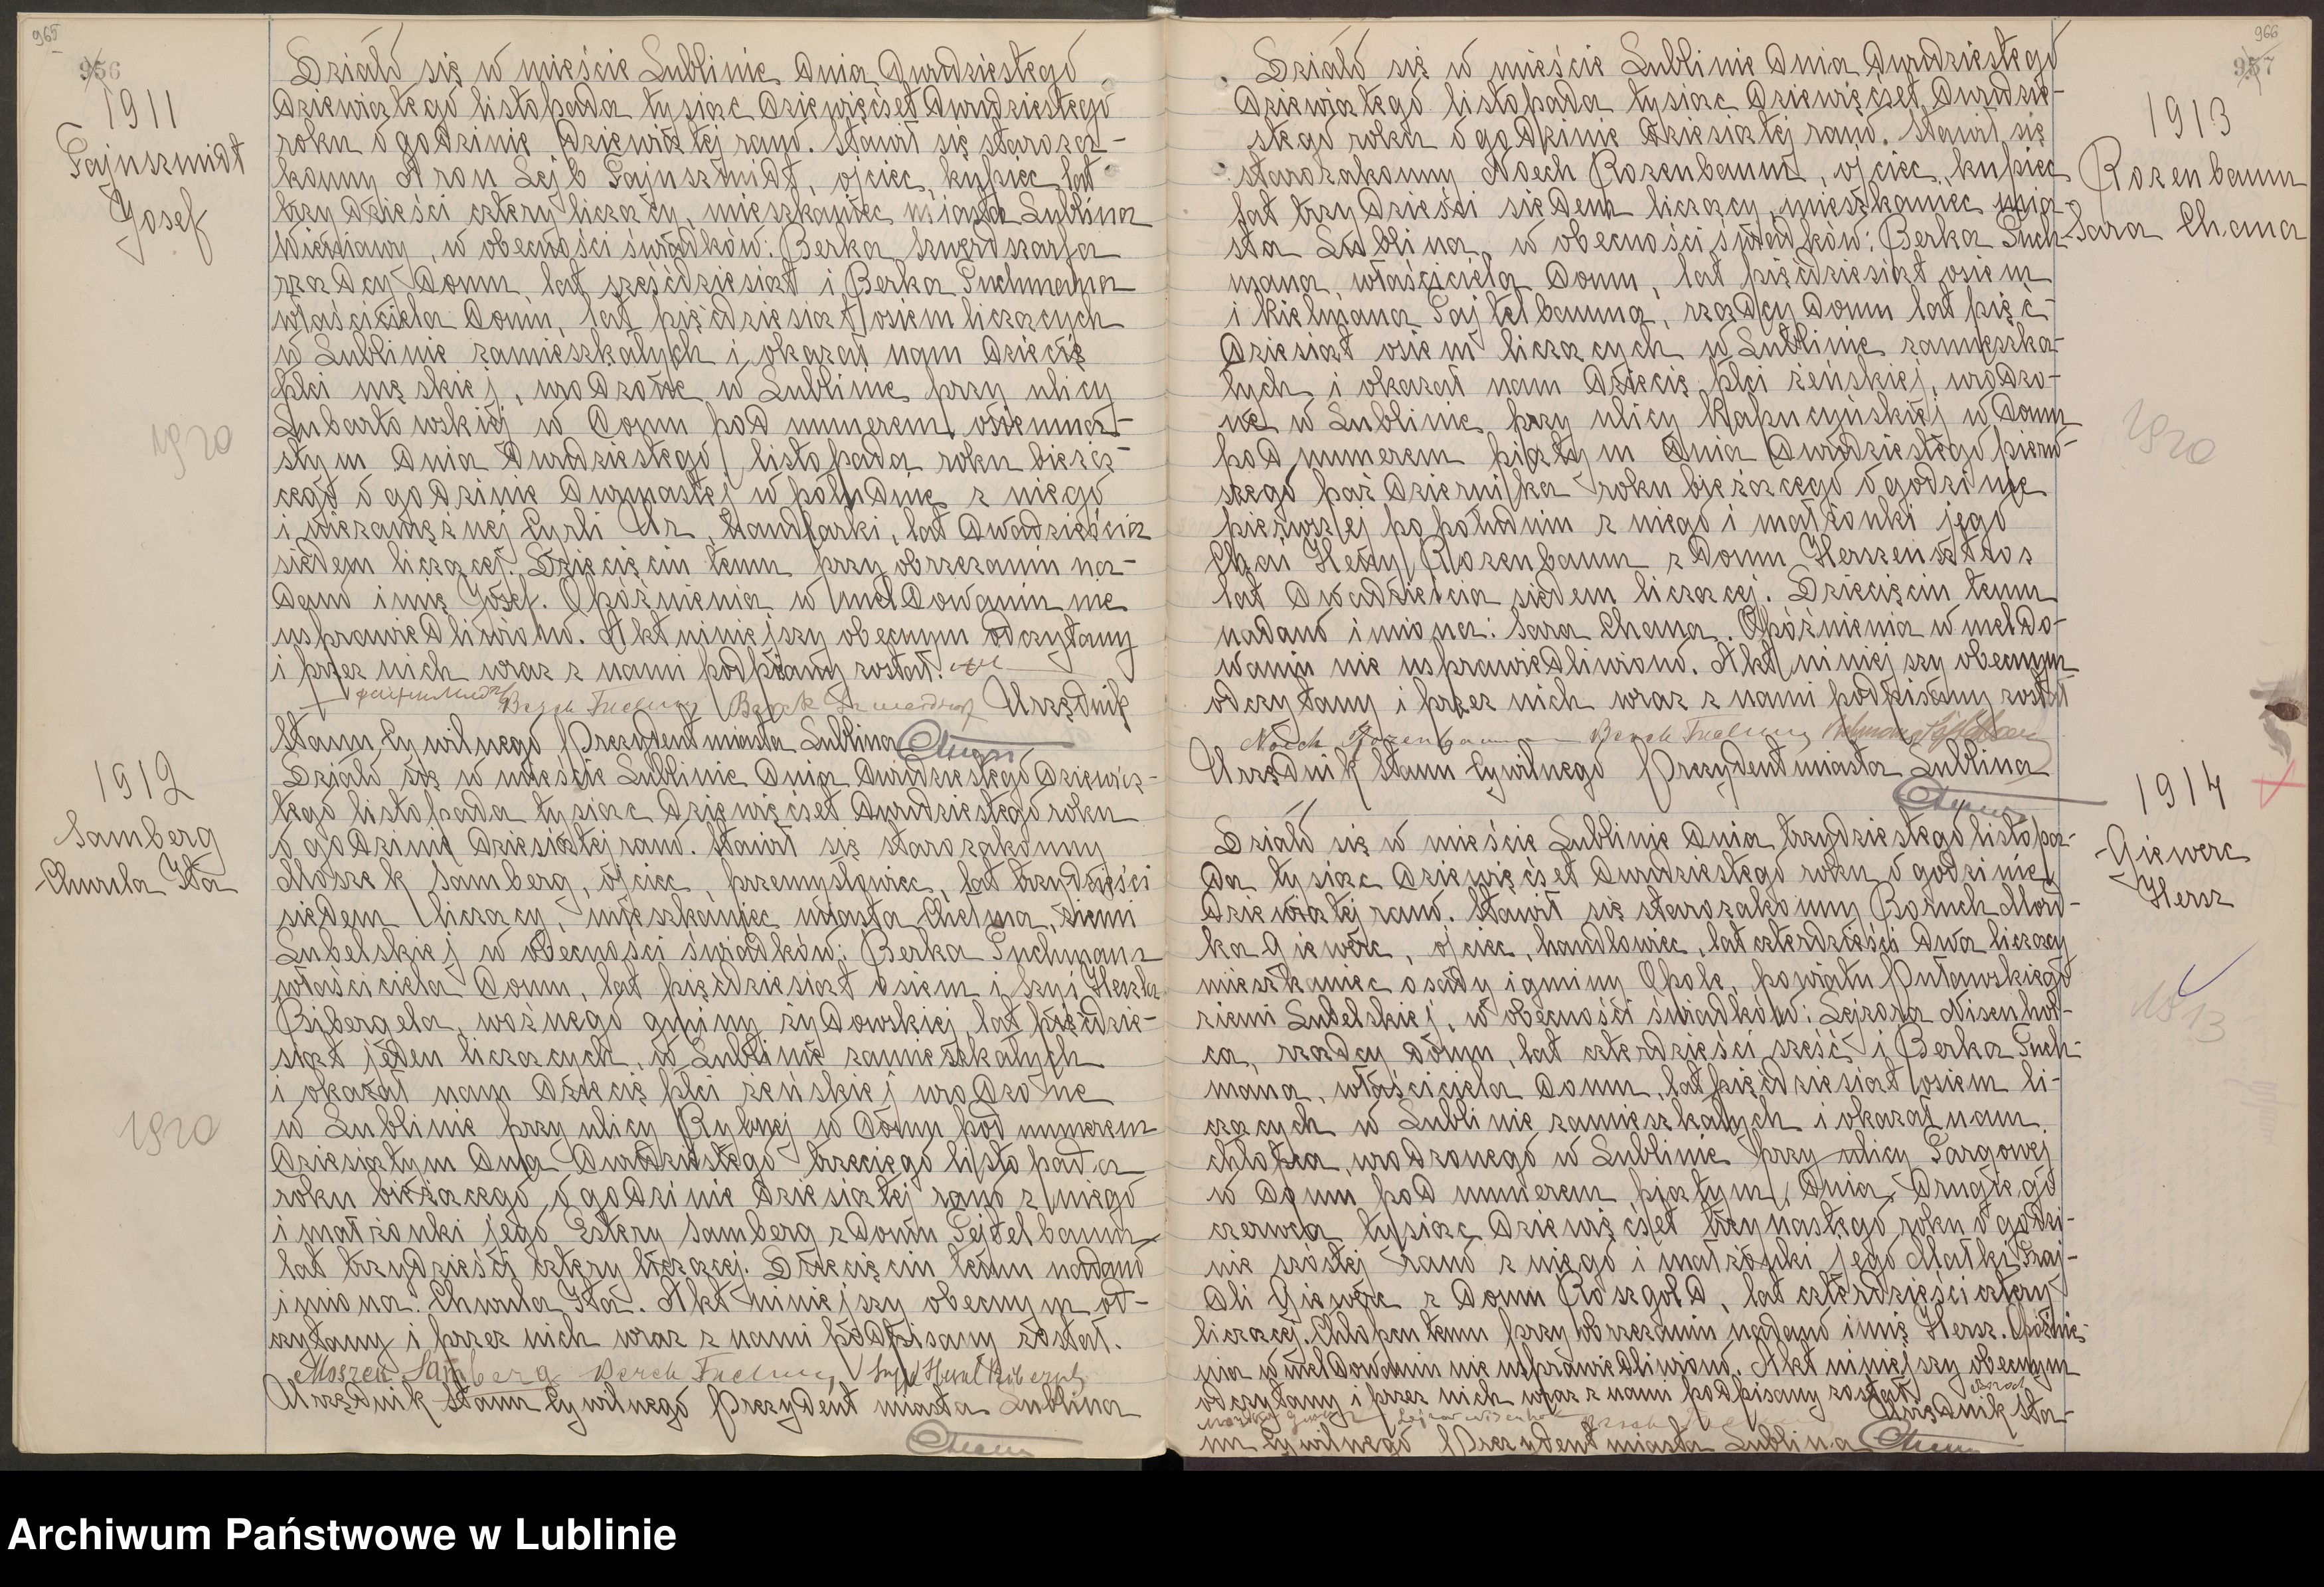 965
956
1911
Fajnszmidt
Josef
1920
Działo się w mieście Lublinie dnia dwudziestego
dziewiątego listopada tysiąc dziewięćset dwudziestego
roku o godzinie dziewiątej rano. Stawił się staroza-
konny Aron Lejb Fajnszmidt, ojciec, kupiec, lat
trzydzieści cztery liczący, mieszkaniec miasta Lublina
Wieniawy, w obecności świadków: Berka Szwerdszarfa
rządcy domu, lat sześćdziesiąt i Berka Fuchmana
właściciela domu, lat pięćdziesiąt osiem liczących
w Lublinie zamieszkałych i okazał nam dziecię
płci męskiej, urodzone w Lublinie przy ulicy
Lubartowskiej w domu pod numerem osiemna-
stym dnia dwudziestego listopada roku bieżą-
cego o godzinie dwunastej w południe z niego
i niezamężnej Cyrli Ur, handlarki, lat dwadzieścia
siedem liczącej. Dziecięciu temu przy obrzezaniu na-
dano imię Josef. Opóźnienia w meldowaniu nie
usprawiedliwiono. Akt niniejszy obecnym odczytany
i przez nich wraz z nami podpisany został.
Berek Fuchman Berek Szwerdszarf Urzędnik
Stanu Cywilnego Prezydent miasta Lublina
1912
Samberg
Chwula Ita
1920
Działo się w mieście Lublinie dnia dwudziestego dziewią-
tego listopada tysiąc dziewięćset dwudziestego roku
o godzinie dziesiątej rano. Stawił się starozakonny
Moszek Samberg, ojciec, przemysłowiec, lat trzydzieści
siedem liczący, mieszkaniec miasta Chełma, ziemi
Lubelskiej w obecności świadków: Berka Fuchmana
właściciela domu, lat pięćdziesiąt osiem i Szyi Herszla
Bibergela, woźnego gminy żydowskiej, lat pięćdzie-
siąt jeden liczących, w Lublinie zamieszkałych
i okazał nam dziecię płci żeńskiej urodzone
w Lublinie przy ulicy Rybnej w domu pod numerem
dziesiątym dnia dwudziestego trzeciego listopada
roku bieżącego, o godzinie dziesiątej rano z niego
i małżonki jego Estery Samberg z domu Tejtelbaum
lat trzydzieści cztery liczącej. Dziecięciu temu nadano
imiona: Chwula Ita. Akt niniejszy obecnym od-
czytany i przez nich wraz z nami podpisany został.
Moszek Samberg Berek Fuchman
Urzędnik Stanu Cywilnego Prezydent miasta Lublina
966
957
1913
Rozenbaum
Sara Chana
1920
Działo się w mieście Lublinie dnia dwudziestego
dziewiątego listopada tysiąc dziewięćset dwudzie-
stego roku o godzinie dziesiątej rano. Stawił się
starozakonny Noech Rozenbaum, ojciec, kupiec
lat trzydzieści siedem liczący, mieszkaniec mia-
sta Lublina, w obecności świadków: Berka Fuch-
mana, właściciela domu, lat pięćdziesiąt osiem
i Kielmana Tajtelbauma, rządcy domu lat pięć-
dziesiąt osiem liczących w Lublinie zamieszka-
łych i okazał nam dziecię płci żeńskiej, urodzo-
ne w Lublinie przy ulicy Kapucyńskiej w domu
pod numerem piątym dnia dwudziestego pierw-
szego października roku bieżącego o godzinie
pierwszej po południu z niego i małżonki jego
Chai Heny Rozenbaum z domu Herszensztros
lat dwadzieścia siedem liczącej. Dziecięciu temu
nadano imiona: Sara Chana. Opóźnienia w meldo-
waniu nie usprawiedliwiono. Akt niniejszy obecnym
odczytany i przez nich wraz z nami podpisany został
Noech Rozenbaum Berek Fuchman
Urzędnik Stanu Cywilnego Prezydent miasta Lublina
1914
Giewerc
Hersz
1913
Działo się w mieście Lublinie dnia trzydziestego listopa-
da tysiąc dziewięćset dwudziestego roku o godzinie
dziewiątej rano. Stawił się starozakonny Boruch Mord-
ka Giewerc, ojciec, handlowiec, lat czterdzieści dwa liczący
mieszkaniec osady i gminy Opole, powiatu Puławskiego
ziemi Lubelskiej, w obecności świadków: Lejzora Nisenhol-
ca, rządcy domu, lat czterdzieści sześć i Berka Fuch-
mana, właściciela domu, lat pięćdziesiąt osiem li-
czących w Lublinie zamieszkałych i okazał nam
chłopca urodzonego w Lublinie przy ulicy Targowej
w domu pod numerem piątym, dnia drugiego
czerwca tysiąc dziewięćset trzynastego roku o godzi-
nie szóstej rano z niego i małżonki jego Małki Fraj-
dli Giewerc z domu Rozgold, lat czterdzieści cztery
liczącej. Chłopcu temu przy obrzezaniu nadano imię Hersz. Opóźnie-
nia w meldowaniu nie usprawiedliwiono. Akt niniejszy obecnym
odczytany i przez nich wraz z nami podpisany został. Urzędnik Sta-
nu Cywilnego Prezydent miasta Lublina
Archiwum Państwowe w Lublinie